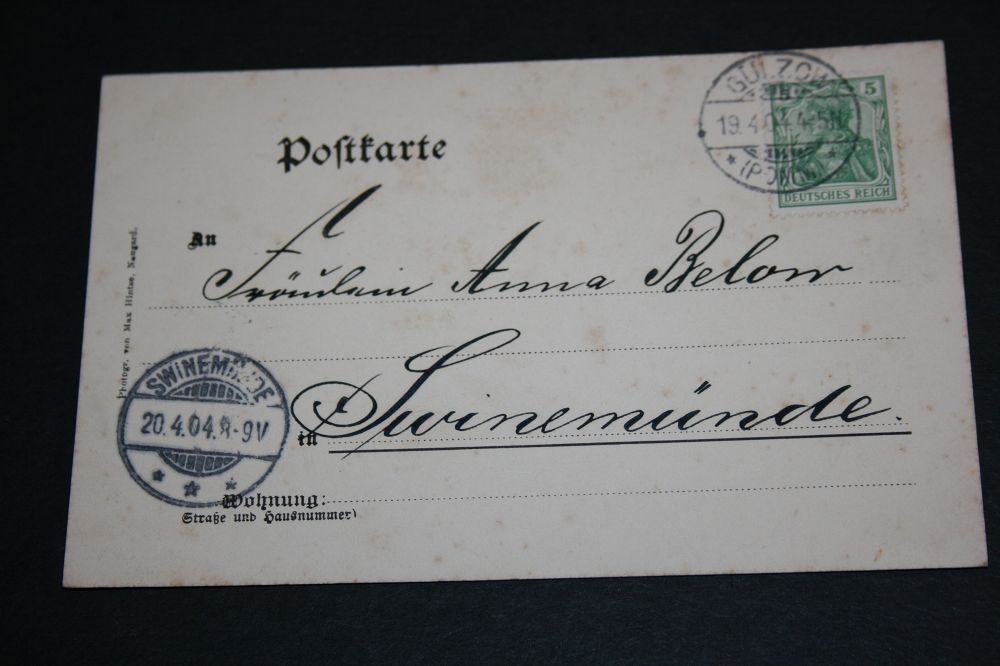 GÜLZOW
19.4.04.4-5N
(POMM)
5
DEUTSCHES REICH
Postkarte
An
Fräulein Anna Below
in Swinemünde.
Wohnung:
Straße und Hausnummer)
SWINEMÜNDE
20.4.04.8-9V
Photogr. von Max Hintze, Naugard.